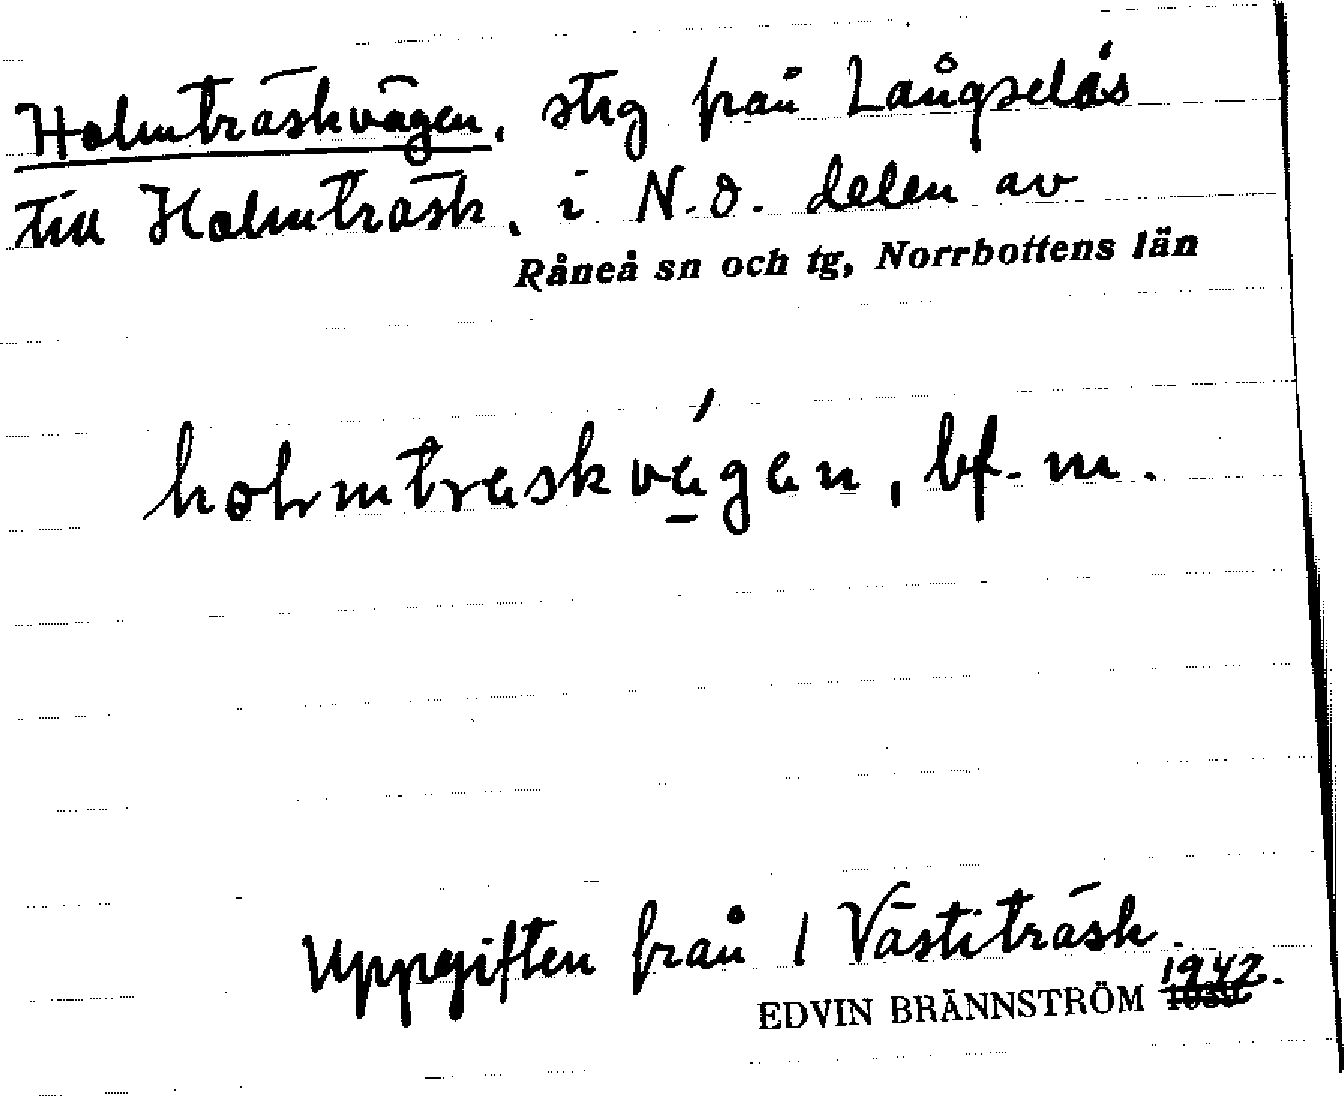 Holmträskvägen, stig från Långselås
till Holmträsk, i N.O. delen av
Råneå sn och tg, Norrbottens län
holmtrəskvägən, bf. m.
Uppgiften från 1 Västiträsk.
EDVIN BRÄNNSTRÖM 1942.